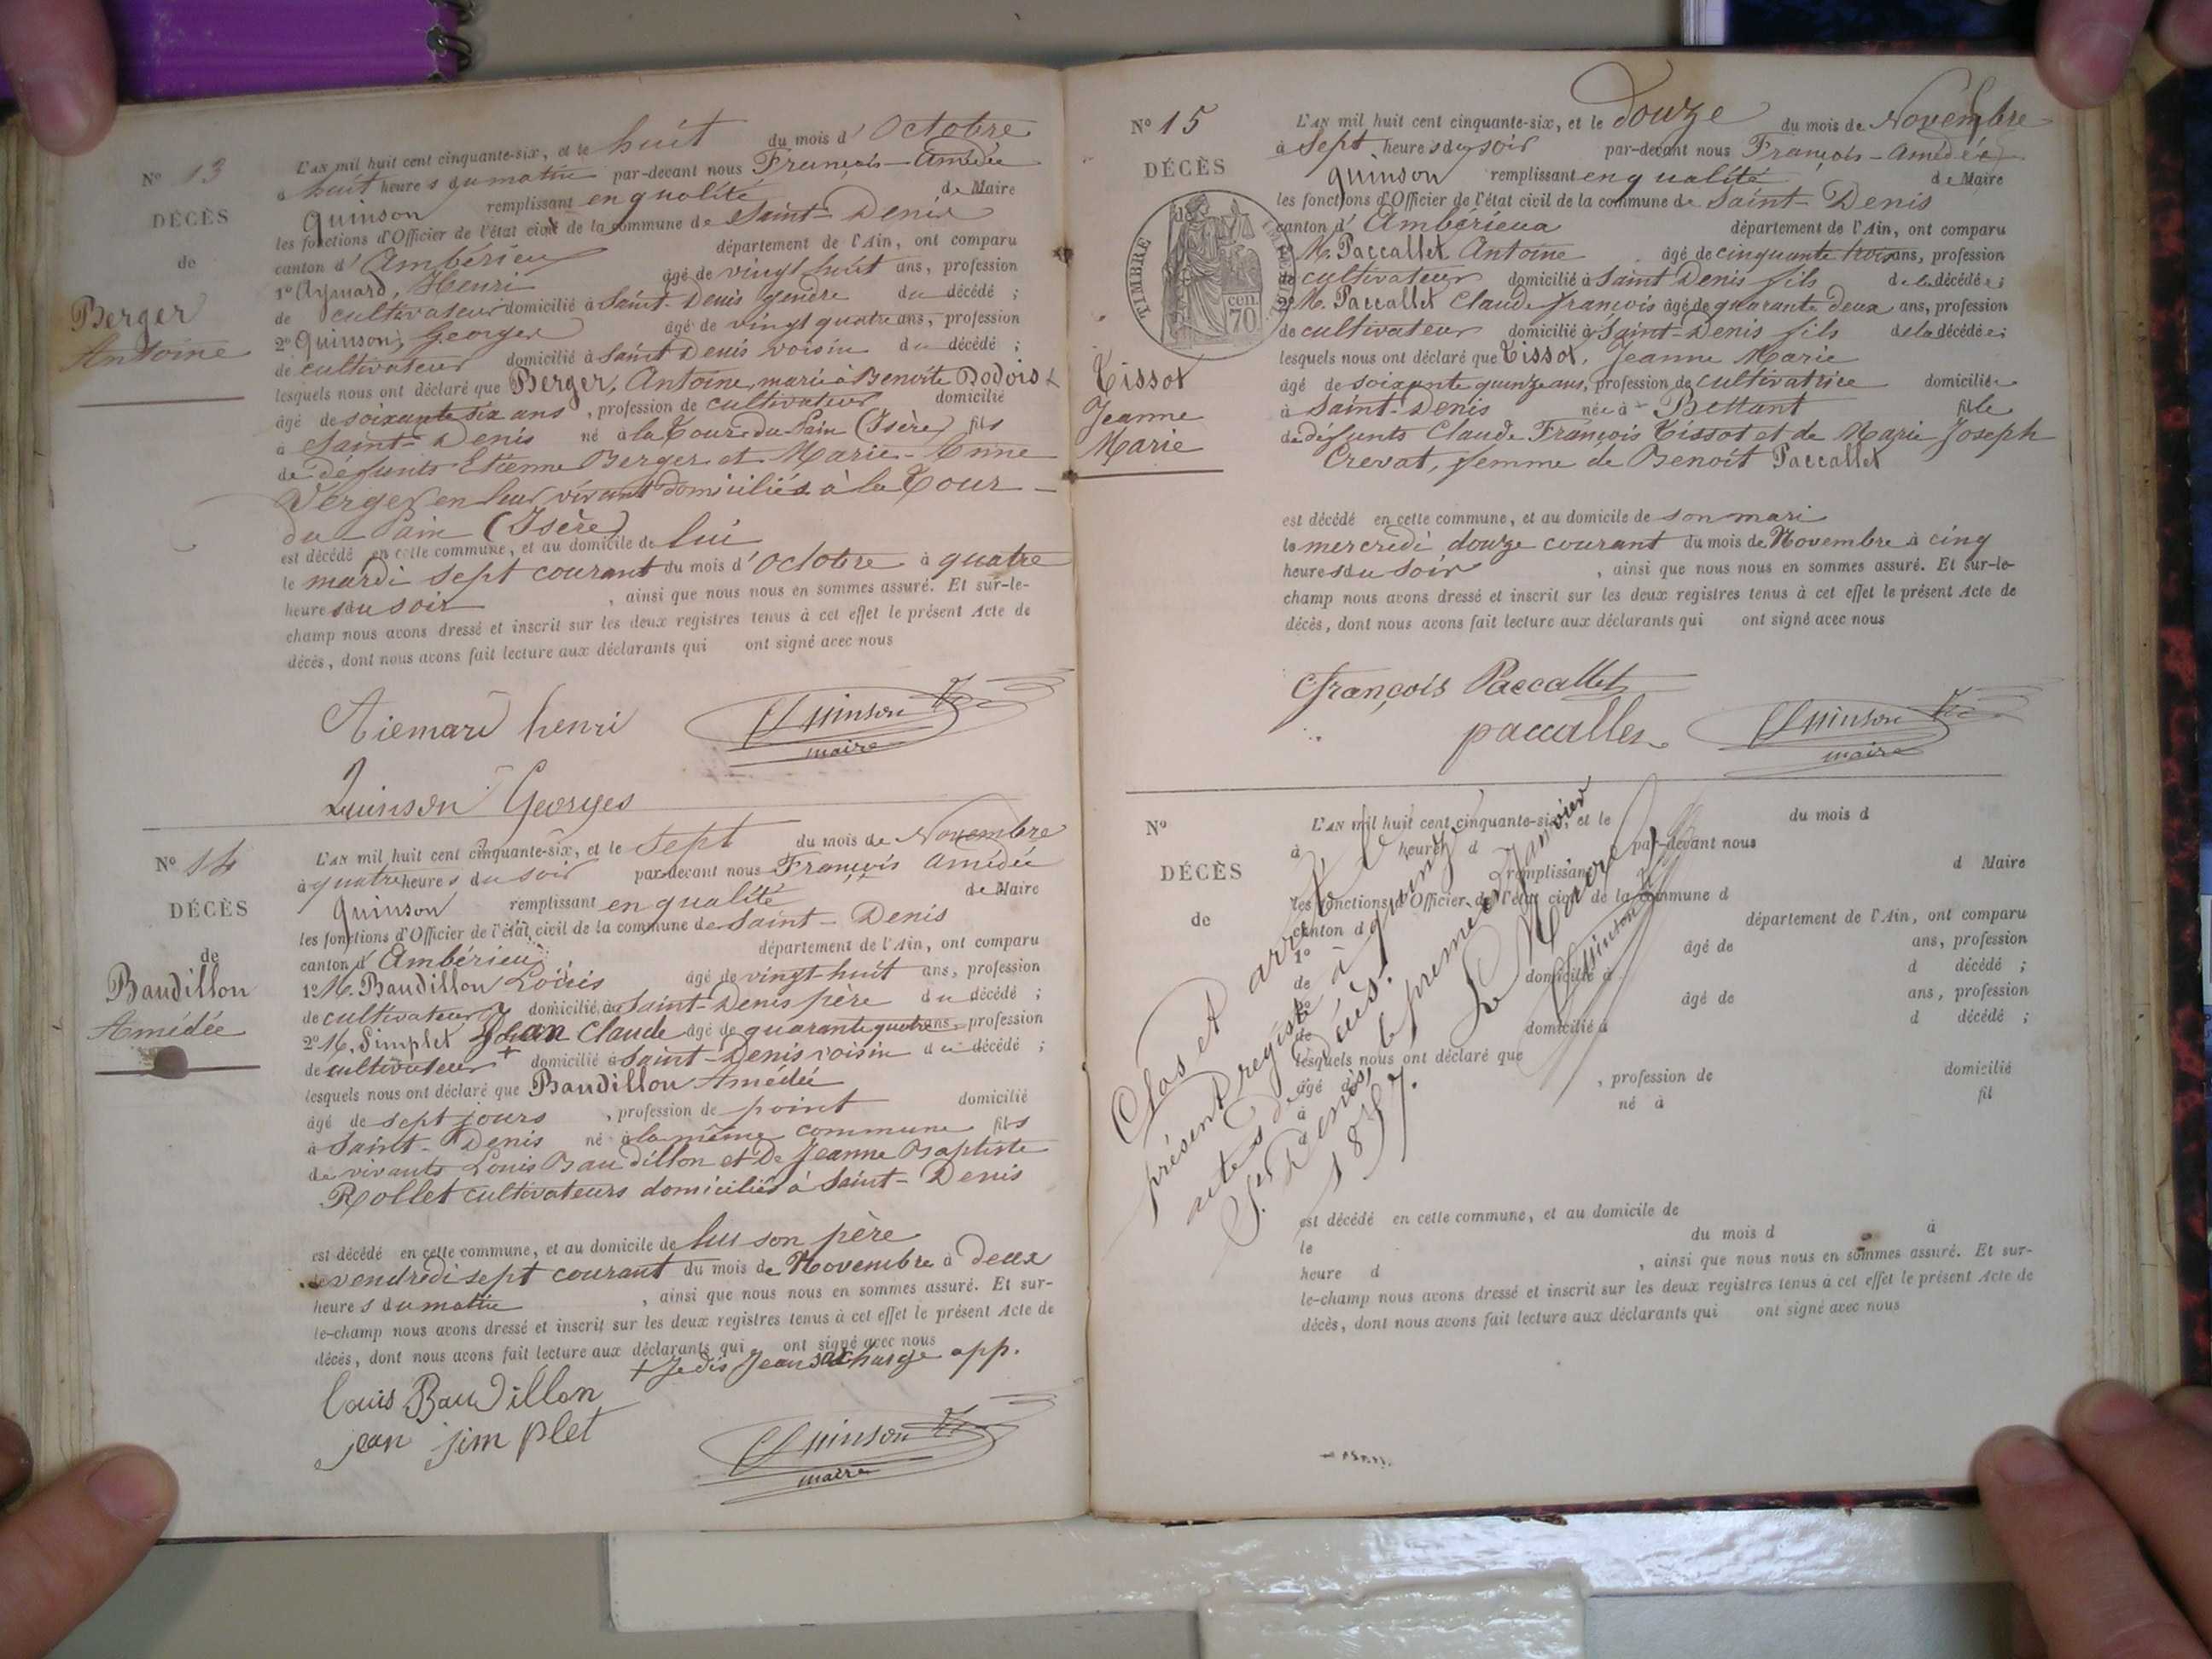 N° 13
DÉCÈS
de
Berger
Antoine
L'AN mil huit cent cinquante-six, et le huit du mois d'Octobre
à huit heures du matin par-devant nous François-Amédée
Quinson remplissant en qualité de Maire
les fonctions d'Officier de l'état civil de la commune de Saint-Denis
canton d'Ambérieu département de l'Ain, ont comparu
1° Aymard, Henri âgé de vingt huit ans, profession
de cultivateur domicilié à Saint-Denis gendre du décédé ;
2° Quinson, Georges âgé de vingt quatre ans, profession
de cultivateur domicilié à Saint Denis voisin du décédé ;
lesquels nous ont déclaré que Berger, Antoine, marié à Benoite Dodois
âgé de soixante six ans, profession de cultivateur domicilié
à Saint-Denis né à la Tour-du-Pain (Isère) fils
de défunts Etienne Berger et Marie-Anne
Verger en leur vivant domiciliés à la Tour-
du Pain (Isère)
est décédé en cette commune, et au domicile de lui
le mardi sept courant du mois d'Octobre à quatre
heures du soir, ainsi que nous nous en sommes assuré. Et sur-le-
champ nous avons dressé et inscrit sur les deux registres tenus à cet effet le présent Acte de
décès, dont nous avons fait lecture aux déclarants qui ont signé avec nous
Aiemard henri
Quinson
maire
Quinson Georges
N° 14
DÉCÈS
de
Baudillon
Amédée
L'AN mil huit cent cinquante-six, et le Sept du mois de Novembre
à quatre heures du soir par-devant nous François Amédée
Quinson remplissant en qualité de Maire
les fonctions d'Officier de l'état civil de la commune de Saint-Denis
canton d'Ambérieu département de l'Ain, ont comparu
1° M. Baudillon Louis âgé de vingt-huit ans, profession
de cultivateur domicilié à Saint-Denis père du décédé ;
2° M. Simplet Jean Claude âgé de quarante quatre ans, profession
de cultivateur + domicilié à Saint-Denis voisin du décédé ;
lesquels nous ont déclaré que Baudillon Amédée
âgé de sept jours, profession de point domicilié
à Saint-Denis né à la même commune fils
de vivants Louis Baudillon et De Jeanne Baptiste
Rollet cultivateurs domiciliés à Saint-Denis
est décédé en cette commune, et au domicile de lui son père
le vendredi sept courant du mois de Novembre à deux
heures du matin, ainsi que nous nous en sommes assuré. Et sur-
le-champ nous avons dressé et inscrit sur les deux registres tenus à cet effet le présent Acte de
décès, dont nous avons fait lecture aux déclarants qui ont signé avec nous
+ Je dis Jean surcharge app.
Louis Baudillon
jean simplet
Quinson
maire
N° 15
DÉCÈS
TIMBRE
70 cen.
Tissot
Jeanne
Marie
L'AN mil huit cent cinquante-six, et le douze du mois de Novembre
à sept heures du soir par-devant nous François-Amédée
Quinson remplissant en qualité de Maire
les fonctions d'Officier de l'état civil de la commune de Saint-Denis
canton d'Ambérieux département de l'Ain, ont comparu
1° M. Paccallet Antoine âgé de cinquante trois ans, profession
de cultivateur domicilié à Saint Denis fils de la décédée ;
2° M. Paccallet Claude françois âgé de quarante deux ans, profession
de cultivateur domicilié à Saint-Denis fils de la décédée ;
lesquels nous ont déclaré que Tissot, Jeanne Marie
âgé de soixante quinze ans, profession de cultivatrice domiciliée
à Saint-Denis née à Bettant fille
de défunts Claude François Tissot et de Marie Joseph
Crevat, femme de Benoit Paccallet
est décédé en cette commune, et au domicile de son mari
le mercredi douze courant du mois de Novembre à cinq
heures du soir, ainsi que nous nous en sommes assuré. Et sur-le-
champ nous avons dressé et inscrit sur les deux registres tenus à cet effet le présent Acte de
décès, dont nous avons fait lecture aux déclarants qui ont signé avec nous
françois Paccallet
paccallet
Quinson
maire
N°
DÉCÈS
de
L'AN mil huit cent cinquante-six, et le du mois d
à heure d par-devant nous
remplissant d Maire
les fonctions d'Officier de l'état civil de la commune d
canton d département de l'Ain, ont comparu
1° âgé de ans, profession
de domicilié à d décédé ;
2° âgé de ans, profession
de domicilié à d décédé ;
lesquels nous ont déclaré que
âgé de, profession de domicilié
à né à fil
d
est décédé en cette commune, et au domicile de
le du mois d à
heure d, ainsi que nous nous en sommes assuré. Et sur-
le-champ nous avons dressé et inscrit sur les deux registres tenus à cet effet le présent Acte de
décès, dont nous avons fait lecture aux déclarants qui ont signé avec nous
Clos et arrêté le
présent registre à quinze
actes de décès.
St Denis, le premier Janvier
1857.
Le Maire
Quinson